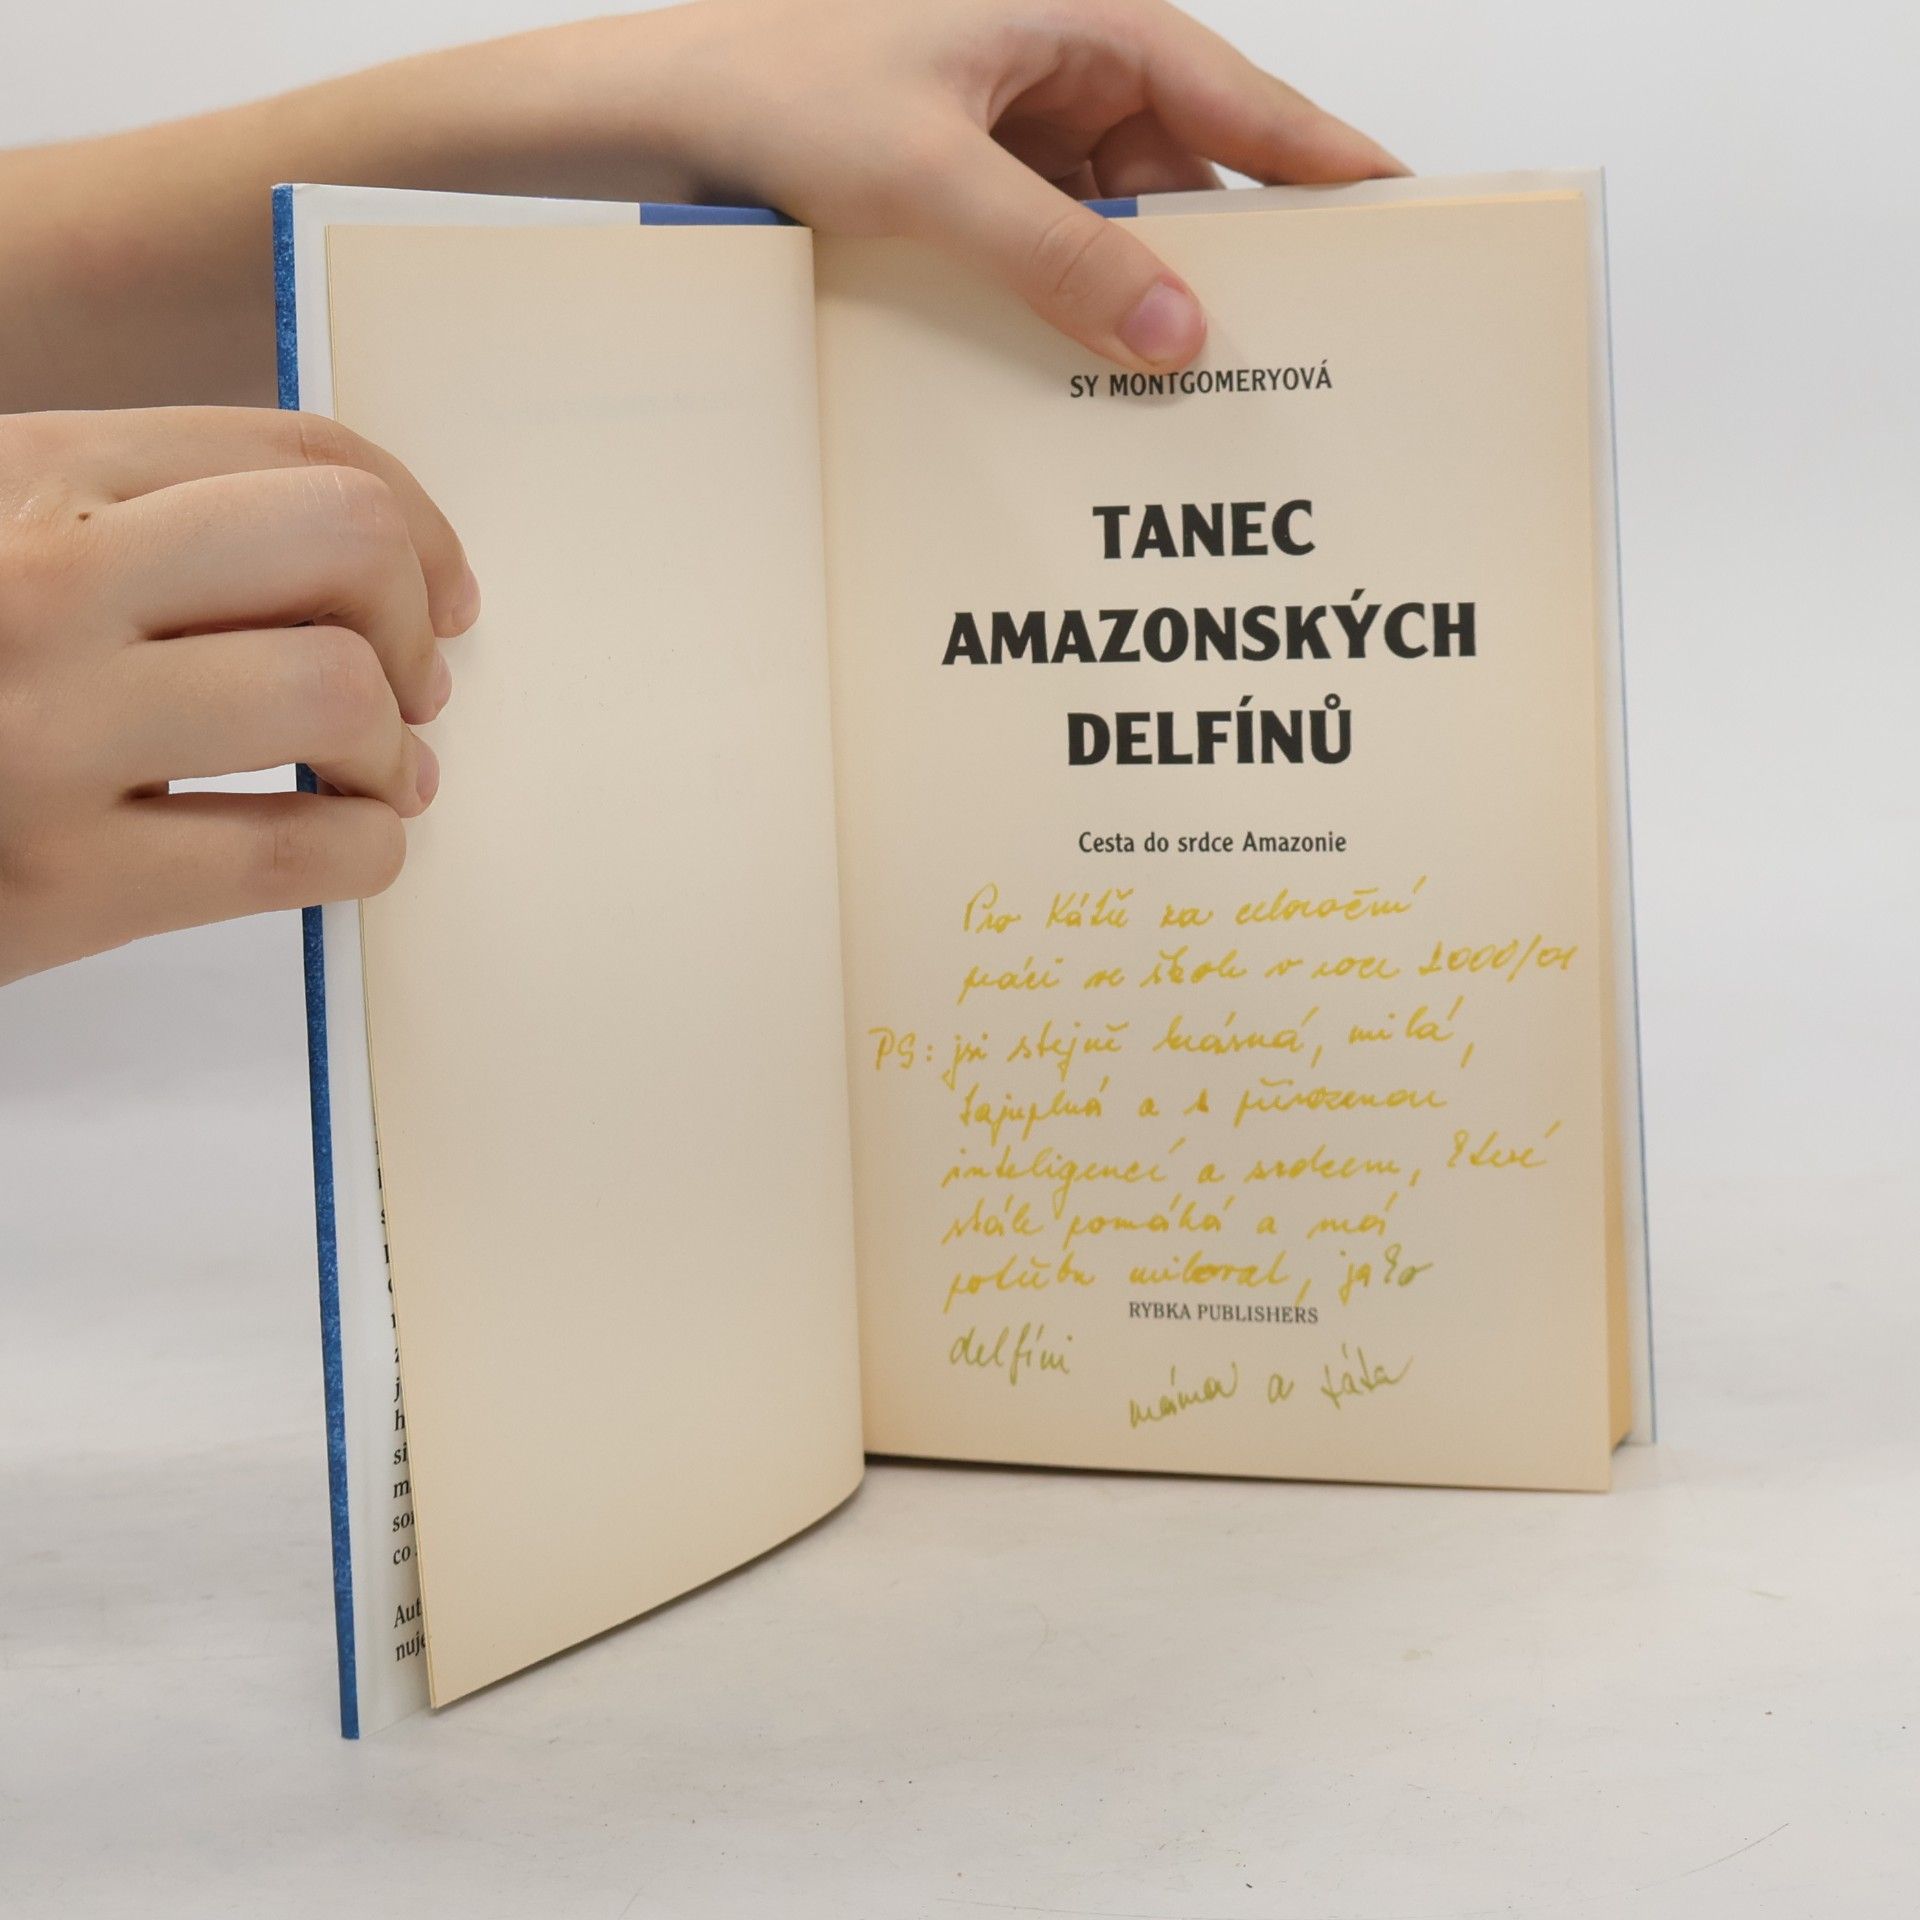 SY MONTGOMERYOVÁ
TANEC
AMAZONSKÝCH
DELFÍNŮ
Cesta do srdce Amazonie
Pro Kátě za celoroční
práci ve škole v roce 2000/01
PS: jsi stejně krásná, milá,
tajuplná a s přirozenou
inteligencí a srdcem, které
stále pomáhá a má
potřebu milovat, jako
RYBKA PUBLISHERS
delfíni
máma a táta
z
j
h
si
m
so
co
Aut
nuje